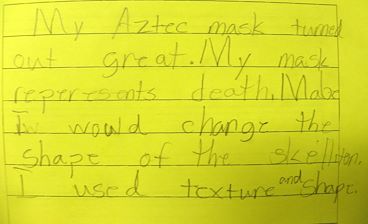 My Aztec mask turned
out great. My mask
reperresents death. Mabe
I would change the
shape of the skelliton.
I used texture and shape.